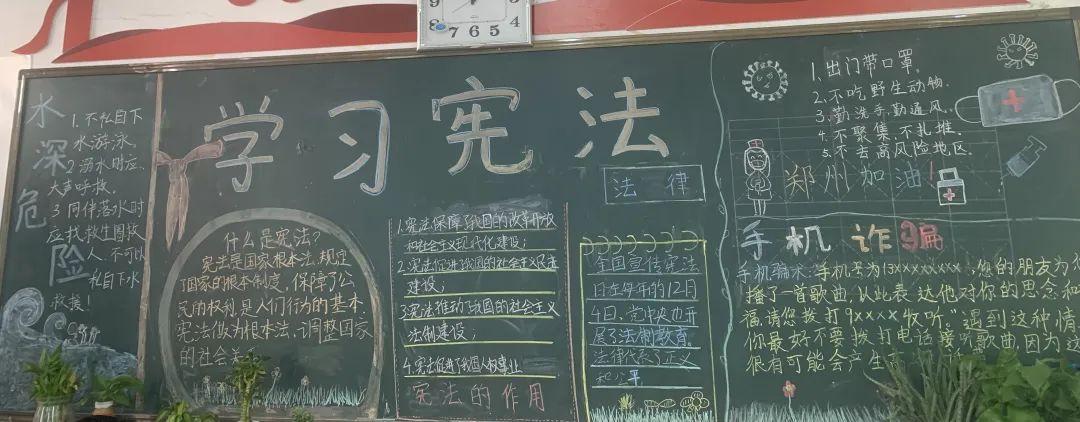 9
3
8
4
7 6 5
水深危险
1. 不私自下
水游泳.
2 溺水时应.
大声呼救.
3 同伴落水时
应找救生圈救
人、不可以
私自下水
救援!
学习宪法
什么是宪法?
宪法是国家根本法、规定
了国家的根本制度, 保障了公
民的权利是人们行为的基本.
宪法做为根本法、调整国家
的社会关
1. 宪法保障了我国的改革开放
和社会主义现代化建设;
2. 宪法促进我国的社会主义民主
建设;
3.宪法推动了我国的社会主义
法制建设;
4.宪法促进了我国人权事业
宪法的作用
法律
全国宣传宪法
日在每年的12月
4日、党中央也开
展了法制教育。
法律代表了正义
和公平
1、出门带口罩.
2.不吃野生动物.
3、勤洗手勤通风.
4.不聚集、不扎堆.
5.不去高风险地区.
郑州加油!
手机诈骗
手机骗术:手机号为13xxxxxxxxx,您的朋友为你
播了一首歌曲,从此表达他对你的思念和
福,请您拨打9xxxx收听."遇到这种情
你最好不要拨打电话接听歌曲,因为这
很有可能会产生高